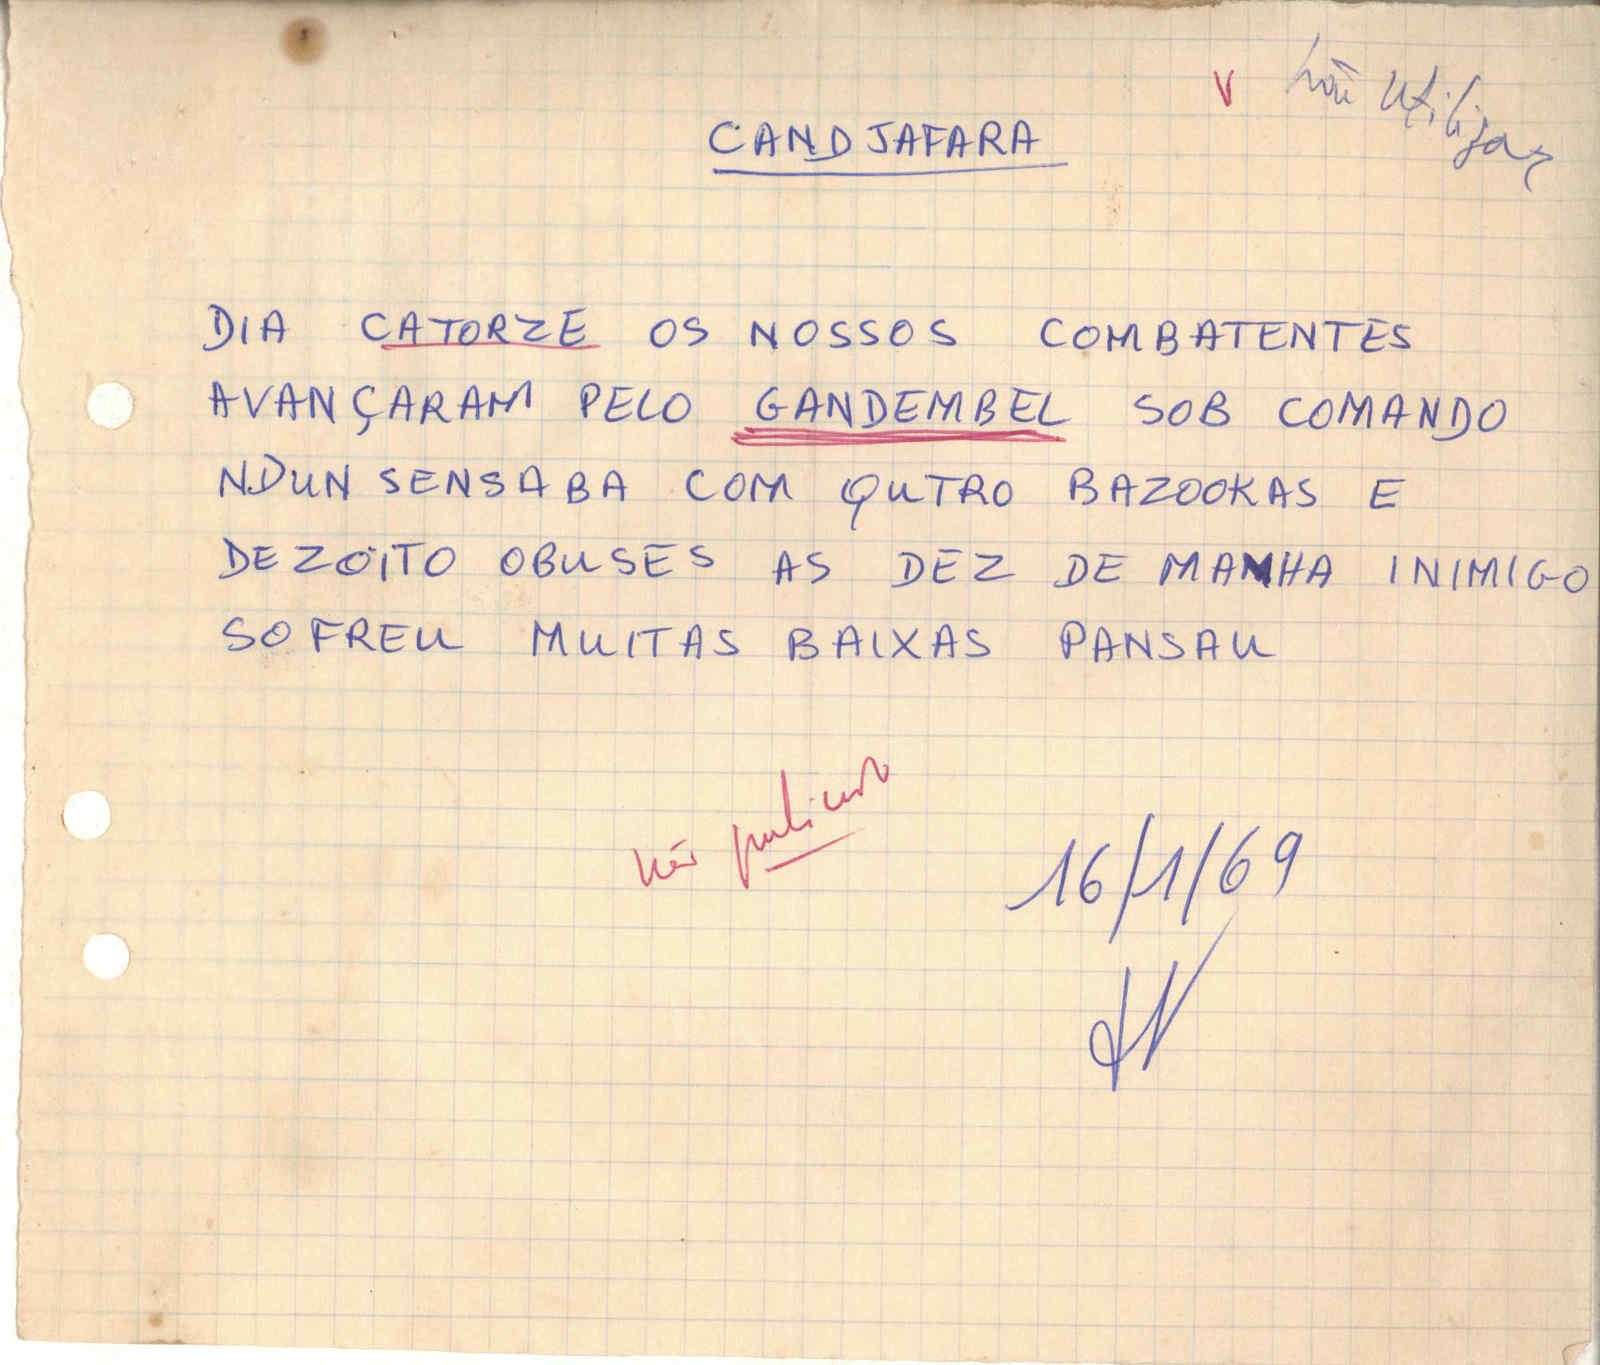 V não utilizar
CANDJAFARA
DIA CATORZE OS NOSSOS COMBATENTES
AVANÇARAM PELO GANDEMBEL SOB COMANDO
NDUN SENSABA COM QUTRO BAZOOKAS E
DEZOITO OBUSES AS DEZ DE MANHA INIMIGO
SOFREU MUITAS BAIXAS PANSAU
não publicado
16/1/69